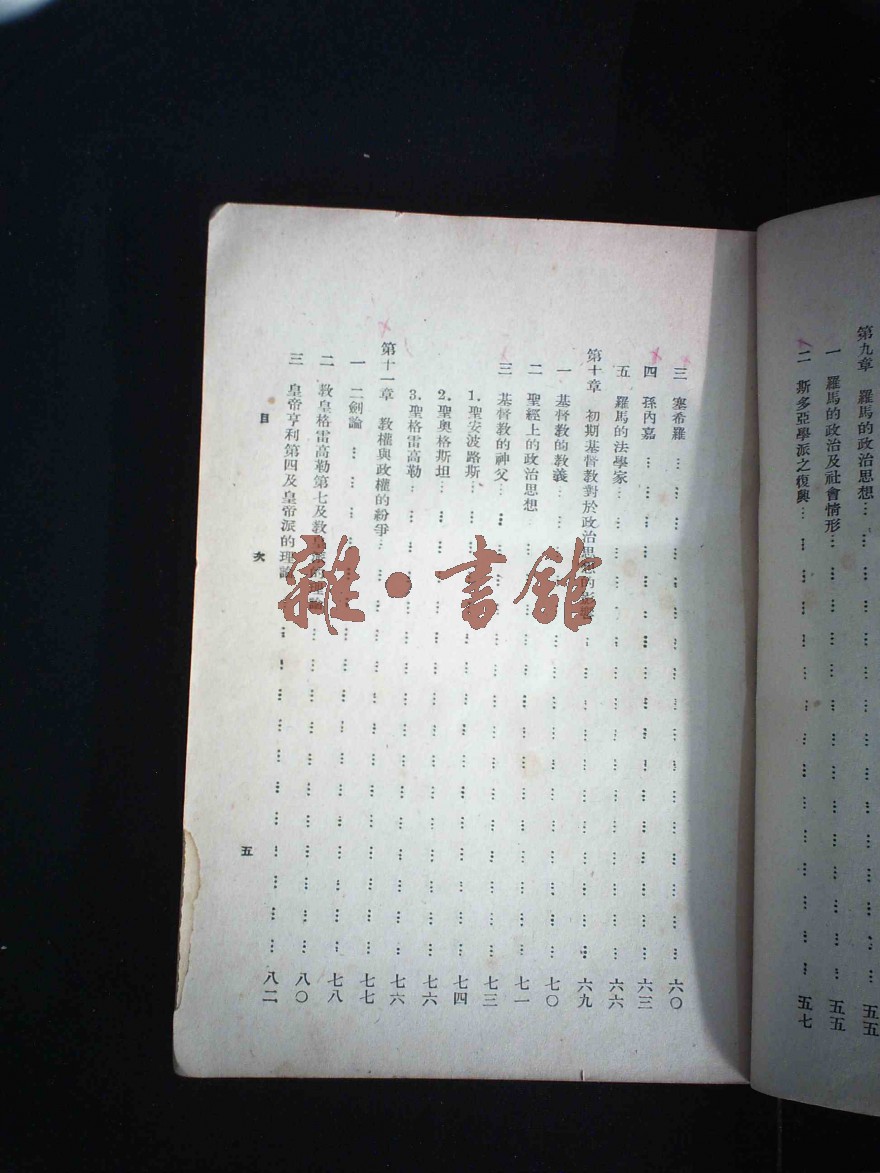 第九章　羅馬的政治思想……五五
一　羅馬的政治及社會情形……五五
二　斯多亞學派之復興……五七
三　塞希羅……六〇
四　孫內嘉……六三
五　羅馬的法學家……六六
第十章　初期基督教對於政治思想的……六九
一　基督教的教義……七〇
二　聖經上的政治思想……七一
三　基督教的神父……七三
1.聖安波路斯……七四
2.聖奧格斯坦……七六
3.聖格雷高勒……七六
第十一章　教權與政權的紛爭……七七
一　二劍論……七八
二　教皇格雷高勒第七及教皇派的理論……八〇
三　皇帝亨利第四及皇帝派的理論……八二
目　次
五
雜·書館